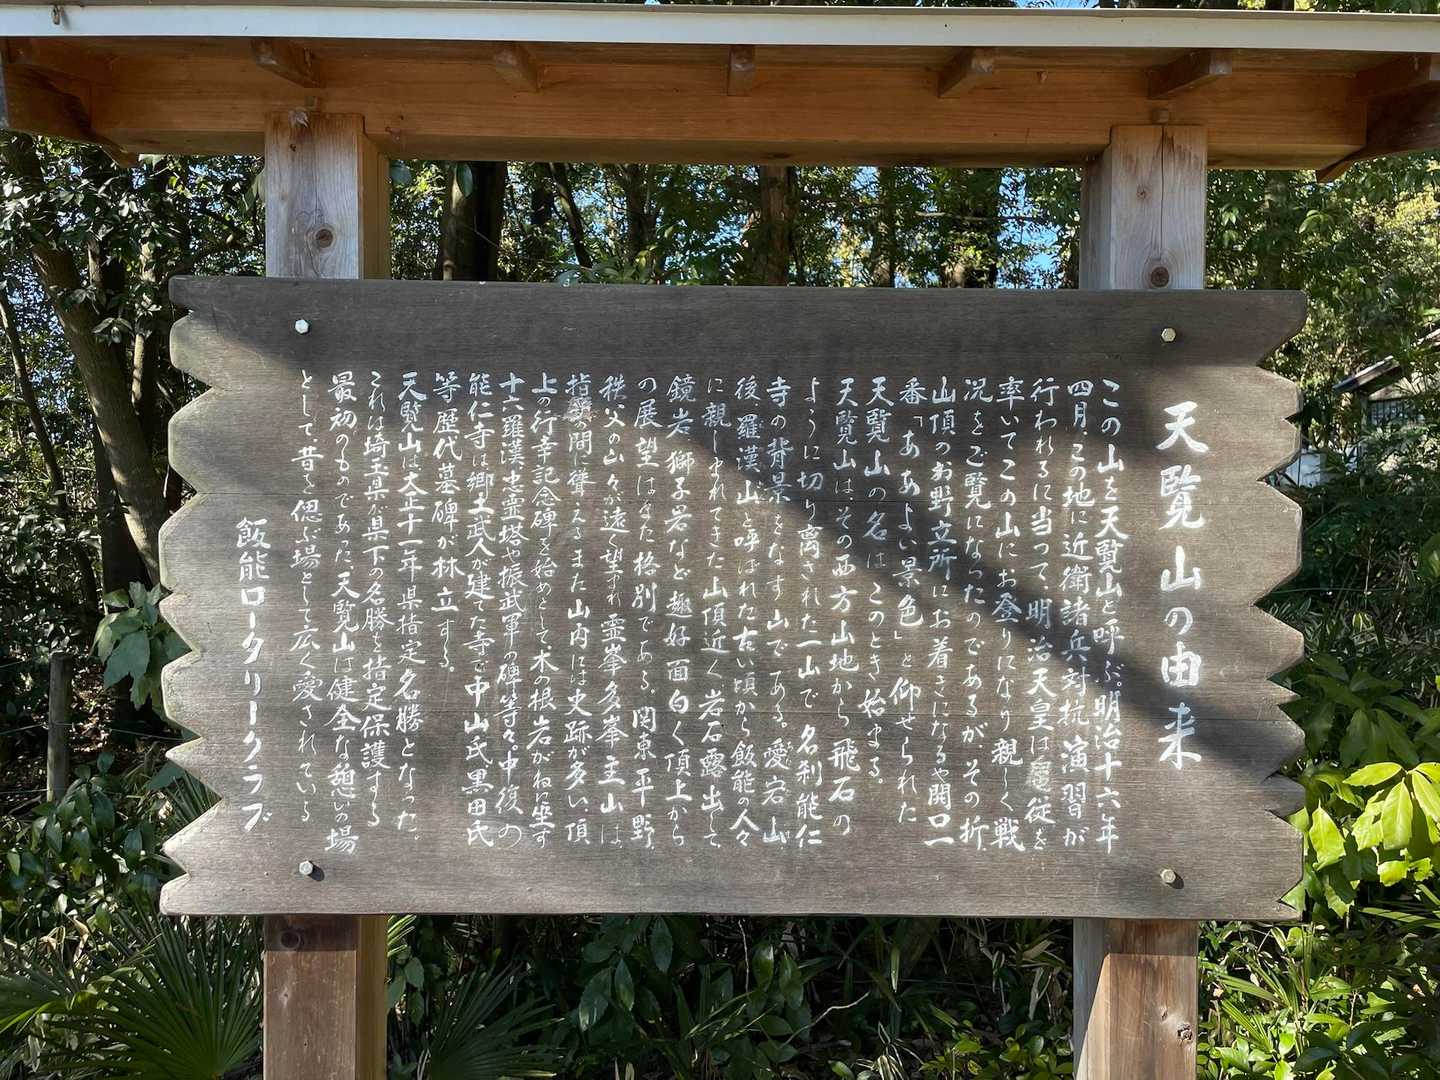 天覧山の由来
この山を天覧山と呼ぶ。明治十六年
四月、この地に近衛諸兵対抗演習が
行われるに当って、明治天皇は 従を
率いてこの山にお登りになり親しく戦
況をご覧になったのであるが、その折、
山頂のお野立所にお着きになるや開口一
番「ああよい景色」と仰せられた
天覧山の名はこのとき始まる。
天覧山はその西方山地から飛石の
ように切り離された一山で名刹能仁
寺の背景をなす山である。愛宕山
後羅漢山と呼ばれた古い頃から飯能の人々
に親しまれてきた山頂近く岩石露出して
鏡岩獅子岩など趣好面白く頂上から
の展望はまた格別である。関東平野、
秩父の山々が遠く望まれ霊峯多峯主山は
指 の間に聳えるまた山内には史跡が多い、頂
上の行幸記念碑を始めとして、木の根岩がねに坐す
十六羅漢、忠霊塔や振武軍の碑等々。中復の
能仁寺は郷土武人が建てた寺で中山氏黒田氏
等歴代墓碑が林立する。
天覧山は大正十一年県指定名勝となった、
これは埼玉県が県下の名勝を指定保護する
最初のものであった、天覧山は健全な憩いの場
として、昔を偲ぶ場として広く愛されている
飯能ロータリークラブ